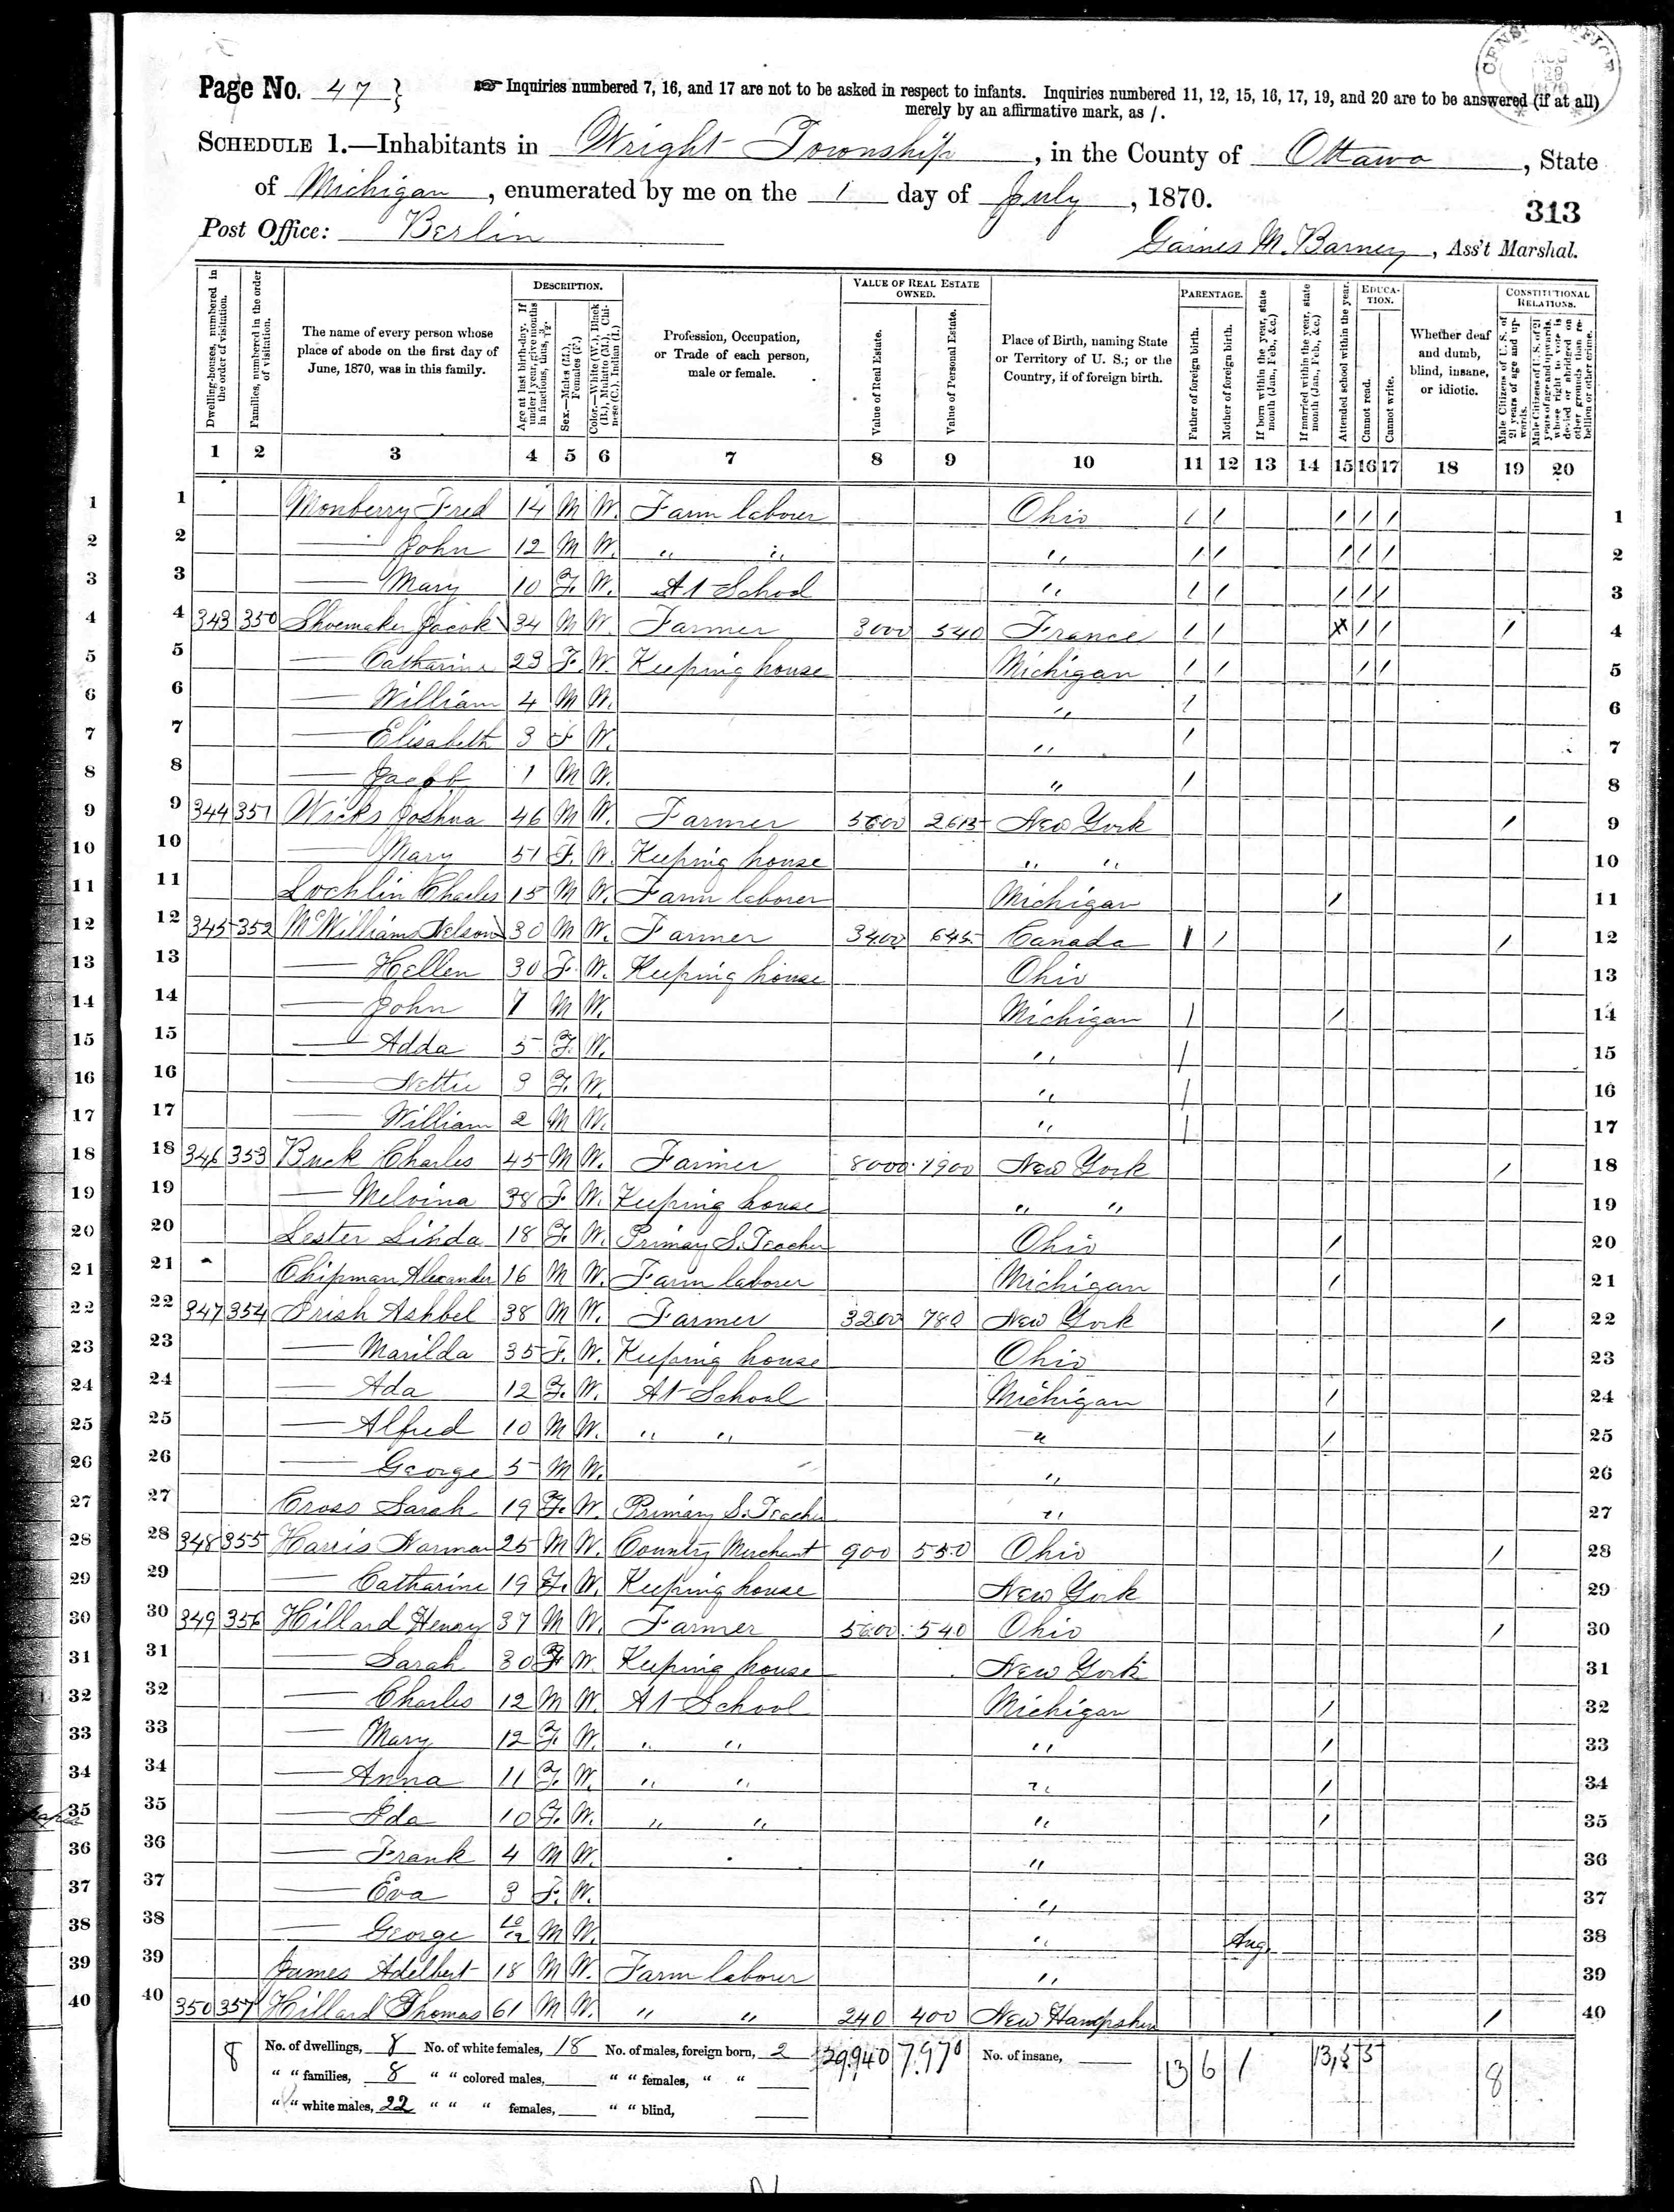 CENSUS OFFICE AUG 29 1870
Page No. 47
Inquiries numbered 7, 16, and 17 are not to be asked in respect to infants. Inquiries numbered 11, 12, 15, 16, 17, 19, and 20 are to be answered (if at all)
merely by an affirmative mark, as /.
SCHEDULE 1.—Inhabitants in Wright Township, in the County of Ottawa, State
of Michigan, enumerated by me on the 1 day of July, 1870.
313
Post Office: Berlin
Gaines M. Barney, Ass't Marshal.
Dwelling-houses, numbered in the order of visitation.
Families, numbered in the order of visitation.
The name of every person whose place of abode on the first day of June, 1870, was in this family.
DESCRIPTION.
Age at last birth-day. If under 1 year, give months in fractions, thus, 3/12.
Sex.—Males (M.), Females (F.)
Color.—White (W.), Black (B.), Mulatto (M.), Chinese (C.), Indian (I.)
Profession, Occupation, or Trade of each person, male or female.
VALUE OF REAL ESTATE OWNED.
Value of Real Estate.
Value of Personal Estate.
Place of Birth, naming State or Territory of U. S.; or the Country, if of foreign birth.
PARENTAGE.
Father of foreign birth.
Mother of foreign birth.
If born within the year, state month (Jan., Feb., &c.)
If married within the year, state month (Jan., Feb., &c.)
Attended school within the year.
EDUCATION.
Cannot read.
Cannot write.
Whether deaf and dumb, blind, insane, or idiotic.
CONSTITUTIONAL RELATIONS.
Male Citizens of U. S. of 21 years of age and upwards.
Male Citizens of U. S. of 21 years of age and upwards, whose right to vote is denied or abridged on other grounds than rebellion or other crime.
1 2 3 4 5 6 7 8 9 10 11 12 13 14 15 16 17 18 19 20
1 Monberry Fred 14 M W. Farm laborer Ohio / / / / / 1
2 — John 12 M W. " " " / / / / / 2
3 — Mary 10 F. W. At School " / / / / / 3
4 343 350 Shoemaker Jacob 34 M W. Farmer 3000 540 France / / X / / / 4
5 — Catharine 23 F. W. Keeping house Michigan / / / / 5
6 — William 4 M W. " / 6
7 — Elisabeth 3 F W. " / 7
8 — Jacob 1 M W. " / 8
9 344 351 Wicks Joshua 46 M W. Farmer 5600 2615 New York / 9
10 — Mary 51 F. W. Keeping house " " 10
11 Lochlin Charles 15 M W. Farm laborer Michigan / 11
12 345 352 McWilliams Nelson 30 M W. Farmer 3400 645 Canada / / / 12
13 — Hellen 30 F. W. Keeping house Ohio 13
14 — John 7 M W. Michigan / / 14
15 — Adda 5 F. W. " / 15
16 — Nettie 3 F. W. " / 16
17 — William 2 M W. " / 17
18 346 353 Buck Charles 45 M W. Farmer 8000 1900 New York / 18
19 — Melvina 38 F. W. Keeping house " " 19
20 Lester Linda 18 F. W. Primary S. Teacher Ohio / 20
21 Chipman Alexander 16 M W. Farm laborer Michigan / 21
22 347 354 Irish Ashbel 38 M W. Farmer 3200 780 New York / 22
23 — Marilda 35 F. W. Keeping house Ohio 23
24 — Ada 12 F. W. At School Michigan / 24
25 — Alfred 10 M W. " " " / 25
26 — George 5 M W. " 26
27 Cross Sarah 19 F. W. Primary S. Teacher " 27
28 348 355 Harris Norman 25 M W. Country Merchant 900 550 Ohio / 28
29 — Catharine 19 F. W. Keeping house New York 29
30 349 356 Hillard Henry 37 M W. Farmer 5600 540 Ohio / 30
31 — Sarah 30 F W. Keeping house New York 31
32 — Charles 12 M W. At School Michigan / 32
33 — Mary 12 F. W. " " " / 33
34 — Anna 11 F. W. " " " / 34
35 — Ida 10 F. W. " " " / 35
36 — Frank 4 M W. " 36
37 — Eva 3 F. W. " 37
38 — George 10/12 M W. " Aug. 38
39 James Adelbert 18 M W. Farm laborer " 39
40 350 357 Hillard Thomas 61 M W. " " 240 400 New Hampshire / 40
8 No. of dwellings, 8 No. of white females, 18 No. of males, foreign born, 2 29,940 7,970 No. of insane, 13 6 1 13 5 5 8
" " families, 8 " " colored males, " " females, " "
" " white males, 22 " " " females, " " blind,